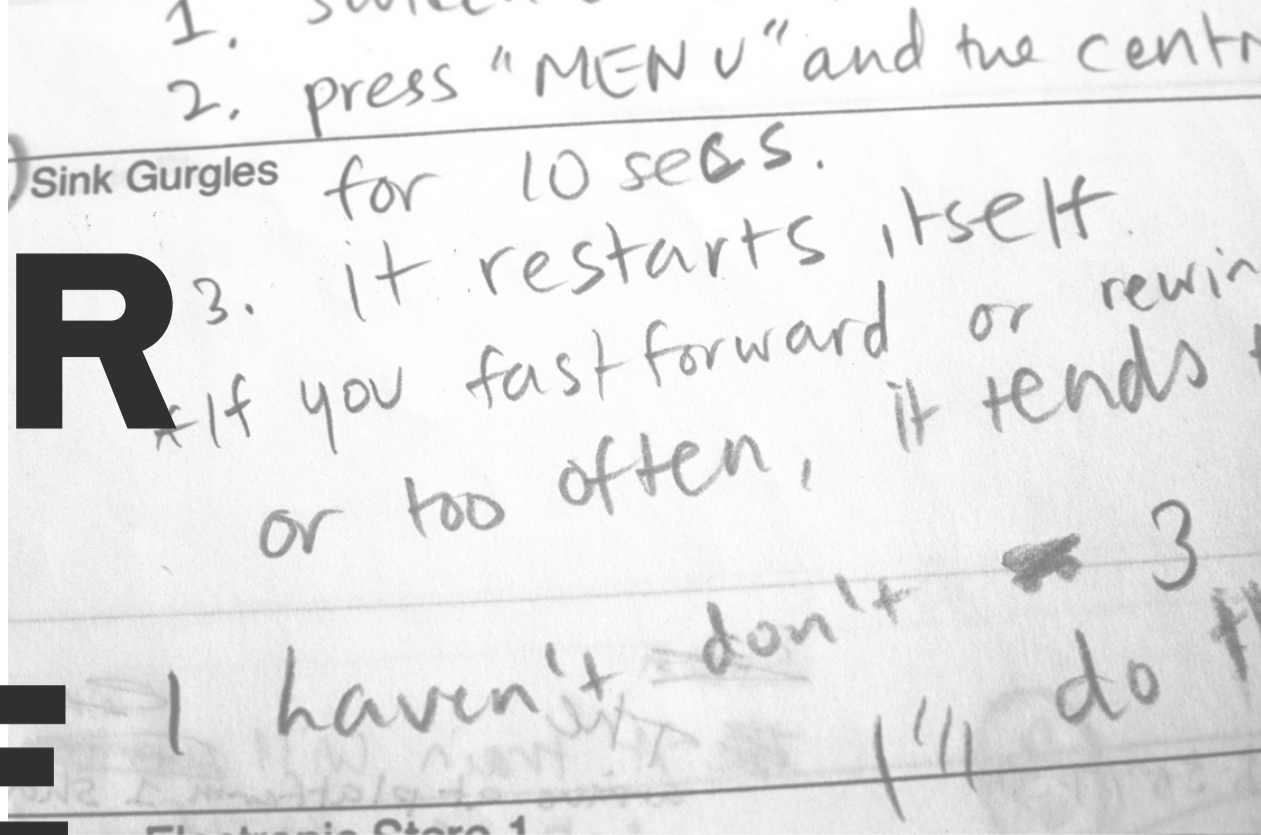 1.
2. press "MENU" and the
Sink Gurgles
for 10 secs.
3. it restarts itself.
R
*If you fast forward or
or too often, it tends
don't 3
I haven't
I'll do
Electronic Store 1
E